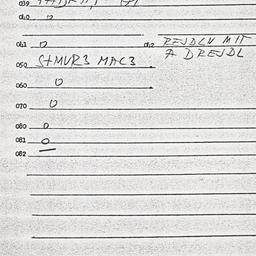 040 0
041 0
042 REJDLU MIT
A DREJDL
050 S+MVR3 MAC3
060 0
070 0
080 0
081 0
082